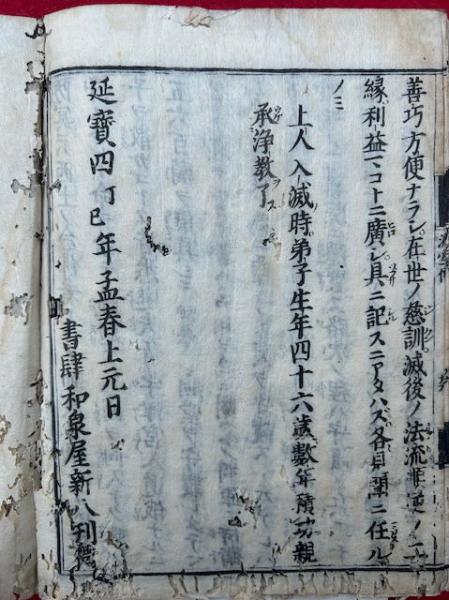 善巧方便ナラン在世ノ慈訓滅後ノ法流順逆ノ二
縁利益マコトニ廣シ具ニ記スニアタハズ各見聞ニ任ル
ノミ
上人入滅時弟子生年四十六歳數年積功親
承浄教了
延寳四丁巳年孟春上元日
書肆 和泉屋新八刊